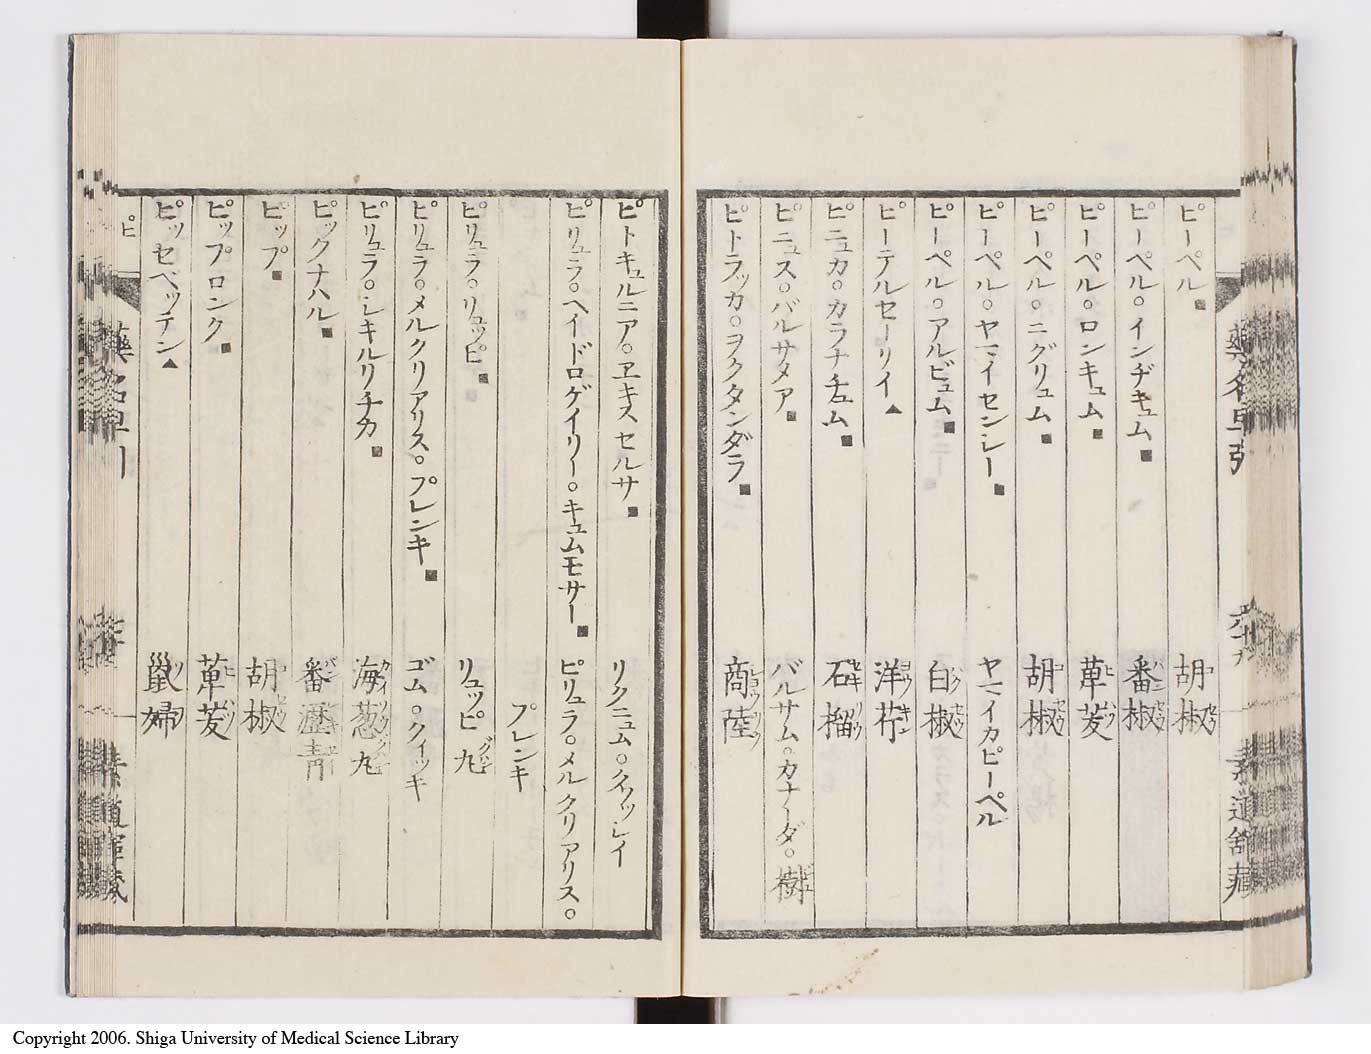 ピーペル■ 胡椒
ピーペル○インヂキュム■ 番椒
ピーペル○ロンキュム■ 蓽茇
ピーペル○ニグリュム■ 胡椒
ピーペル○ヤマイセンシー■ ヤマイカピーペル
ピーペル○アルビュム■ 白椒
ピーテルセーリイ▲ 洋芹
ピニュカ○カラナチュム■ 石榴
ピニュス○バルサメア■ バルサム○カナーダ○樹
ピトラッカ○ヲクタンダラ■ 商陸
ピトキュルニア○ヱキスセルサ■ リクニュム○クワッレイ
ピリュラ○ヘイドロゲイリー○キュムモサー■ ピリュラ○メルクリアリス○
プレンキ
ピリュラ○リュッピ■ リュッピ丸
ピリュラ○メルクリアリス○プレンキ■ ゴム○クイッキ
ピリュラ○シキルリチカ■ 海葱丸
ピックナハル■ 番瀝青
ピップ■ 胡椒
ピップロンク■ 蓽茇
ピッセベッテン▲ 鼠婦
ピ
藥名早引
六十九
Copyright 2006. Shiga University of Medical Science Library